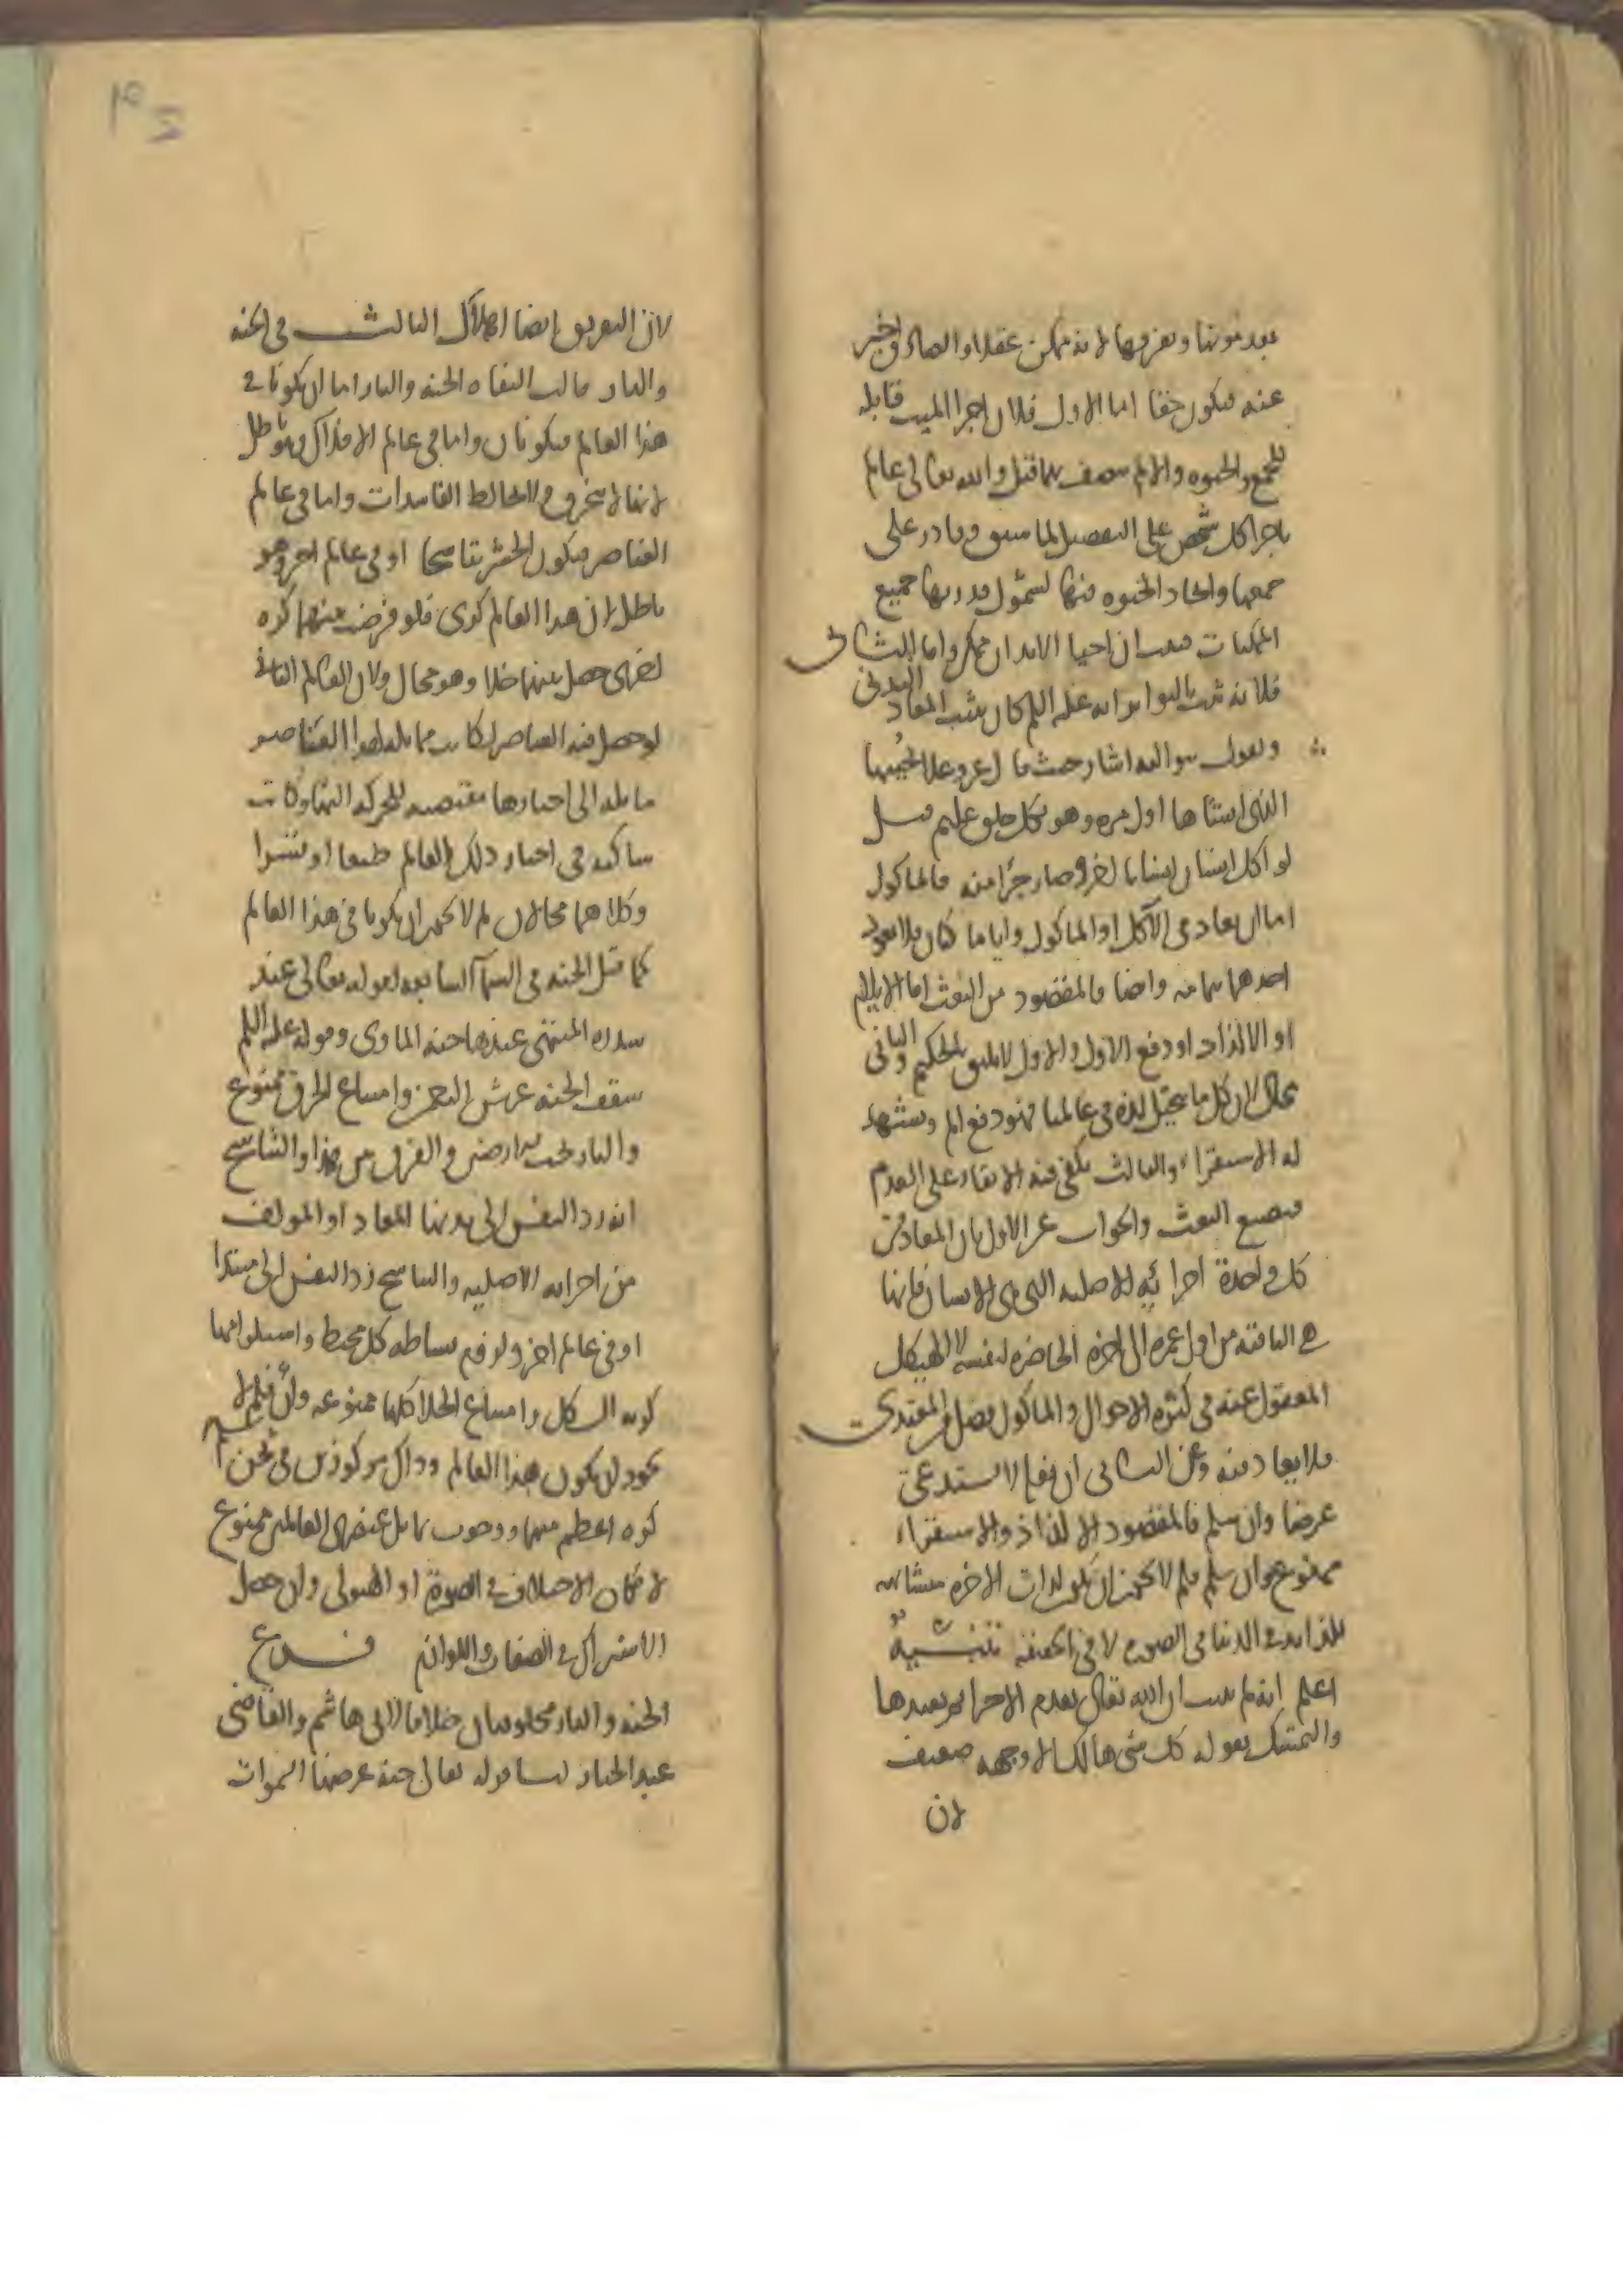 بعد موتها وتفرقها لانه ممكن عقلا والصادق اخبر
عنه فيكون حقا اما الاول فلان اجزا الميت قابلة
للجمع والحيوة والا لم يتصف بها قبل والله تعالى عالم
باجزا كل شخص على التفصيل لما سبق وقادر على
جمعها وايجاد الحيوة فيها لشمول قدرته جميع
الممكنات فثبت ان احيا الابدان ممكن واما الثاني
فلانه ثبت بالتواتر انه عليه السلم كان يثبت المعاد البدني
ويقول به واليه اشار حيث قال عز وعلا يحييها
الذي انشاها اول مرة وهو بكل خلق عليم قيل
لو اكل انسان انسانا اخر وصار جزا منه فالماكول
اما ان يعاد في الآكل او الماكول وايا ما كان فلا يعود
احدهما بتمامه وايضا فالمقصود من البعث اما الايلام
او الالذاذ او دفع الالم والاول لا يليق بالحكيم والثاني
محال لان كل ما يتخيل لذة في عالمنا فهو دفع الم ويشهد
له الاستقراء والثالث يكفي فيه الابقاء على العدم
فيضيع البعث والجواب عن الاول بان المعاد من
كل واحدة اجزائه الاصلية التي هي الانسان فانها
هي الباقية من اول عمره الى اخره الحاضرة لنفسه لا الهيكل
المغفول عنه في كثرة الاحوال والماكول فضل من المغتذي
فلا يعاد فيه وعن الثاني ان فعله لا يستدعي
غرضا وان سلم فالمقصود الالذاذ والاستقراء
ممنوع وان سلم فلم لا يجوز ان يكون لذات الاخرة مشابهة
للذائذ الدنيا في الصورة لا في الحقيقة تنبيه
اعلم انه لم يثبت ان الله تعالى يعدم الاجزا ثم يعيدها
والتمسك بقوله كل شي هالك الا وجهه ضعيف
لان
لان التفريق ايضا اهلاك الثالث في الجنة
والنار قالت النفاة الجنة والنار اما ان يكونا في
هذا العالم فيكونان واما في عالم الافلاك وهو باطل
لانها لا تنخرق ولا تخالط الفاسدات واما في عالم
العناصر فيكون الحشر تناسخا او في عالم اخر وهو
باطل لان هذا العالم كري فلو فرضت بينهما كرة
اخرى حصل بينهما خلا وهو محال ولان العالم الثاني
لو حصل فيه العناصر لكانت مماثلة لهذا العناصر
مائلة الى احيازها مقتضية للحركة اليها وكانت
ساكنة في احياز ذلك العالم طبعا او قسرا
وكلاهما محالان لم لا يجوز ان يكونا في هذا العالم
كما قيل الجنة في السمآ السابعة لقوله تعالى عند
سدرة المنتهى عندها جنة الماوى وقوله عليه السلم
سقف الجنة عرش الرحمن وامتناع الخرق ممنوع
والنار تحت الارضين والفرق بين هذا والتناسخ
انه رد النفس الى بدنها المعاد او المولف
من اجزائه الاصلية والتناسخ رد النفس الى مبتدا
او في عالم اخر ولزوم بساطة كل محيط واستلزامها
كرية الشكل وامتناع الخلا كلها ممنوعة وان سلم فلم لا
يجوز ان يكون هذا العالم وذاك مركوزين في ثخن
كرة اعظم منهما ووجوب تماثل عنصري العالمين ممنوع
لامكان الاختلاف في الصورة او الهيولى وان حصل
الاشتراك في الصفات واللوازم فرع
الجنة والنار مخلوقتان خلافا لابي هاشم والقاضي
عبد الجبار لنا قوله تعالى جنة عرضها السموات